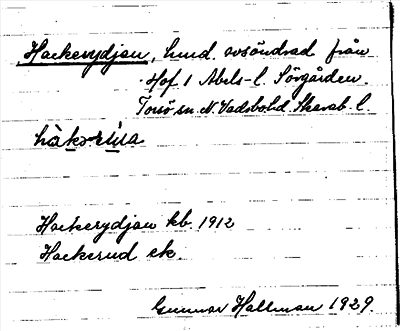 Hackerydjan, hmd. avsöndrad från
Hof 1 Abels-l. Sörgården.
Torsö sn. N. Vadsbohd. Skarab. l.
Hackerydjan kb. 1912
Hackerud ek.
Gunnar Hallman 1929.